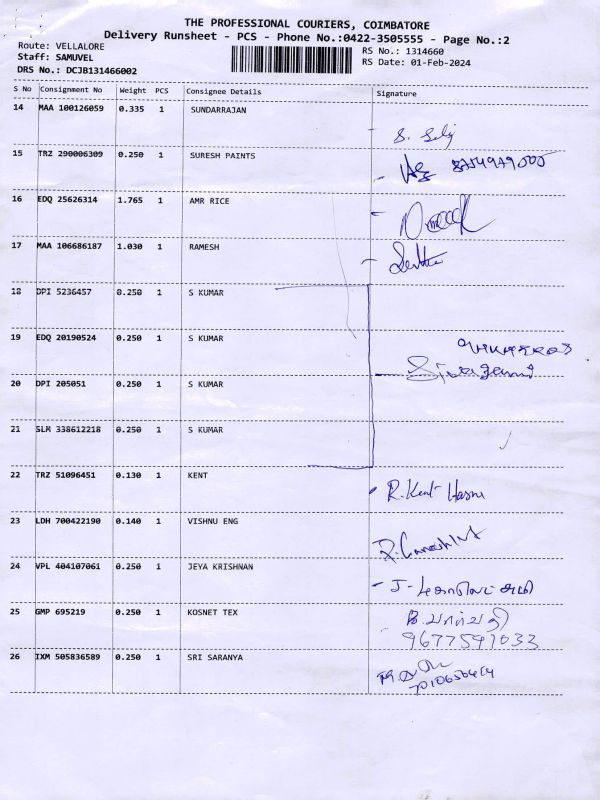 THE PROFESSIONAL COURIERS, COIMBATORE
Delivery Runsheet - PCS - Phone No.:0422-3505555 - Page No.:2
Route: VELLALORE
Staff: SAMUVEL
DRS No.: DCJB131466002
RS No.: 1314660
RS Date: 01-Feb-2024
S No Consignment No Weight PCS Consignee Details Signature
14 MAA 100126059 0.335 1 SUNDARRAJAN
15 TRZ 290006309 0.250 1 SURESH PAINTS
16 EDQ 25626314 1.765 1 AMR RICE
17 MAA 106686187 1.030 1 RAMESH
18 DPI 5236457 0.250 1 S KUMAR
19 EDQ 20190524 0.250 1 S KUMAR
20 DPI 205051 0.250 1 S KUMAR
21 SLM 338612218 0.250 1 S KUMAR
22 TRZ 51096451 0.130 1 KENT R. Kent
23 LDH 700422190 0.140 1 VISHNU ENG
24 VPL 404107061 0.250 1 JEYA KRISHNAN
25 GMP 695219 0.250 1 KOSNET TEX B. பார்வதி
9677597033
26 IXM 505836589 0.250 1 SRI SARANYA